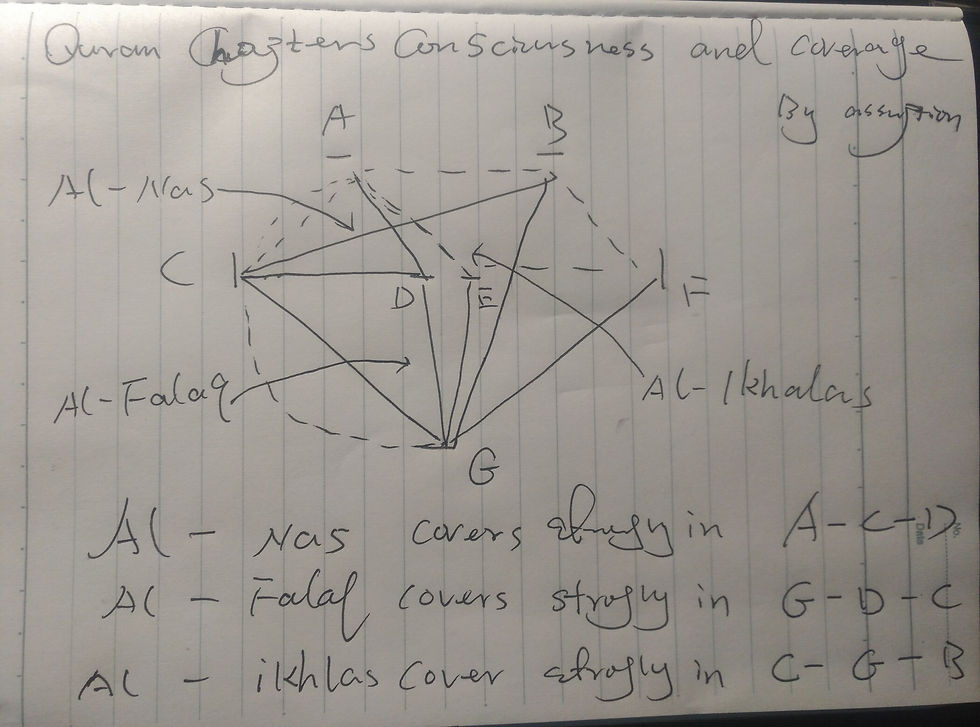 Quran Chapters Consciusness and coverage
By assuption
A
B
Al-Nas
C
D
E
F
Al-Falaq
Al-Ikhalas
G
Al - Nas covers strogly in A-C-D
Al - Falaq covers strogly in G-D-C
Al - ikhlas cover strogly in C-G-B
No.
Date